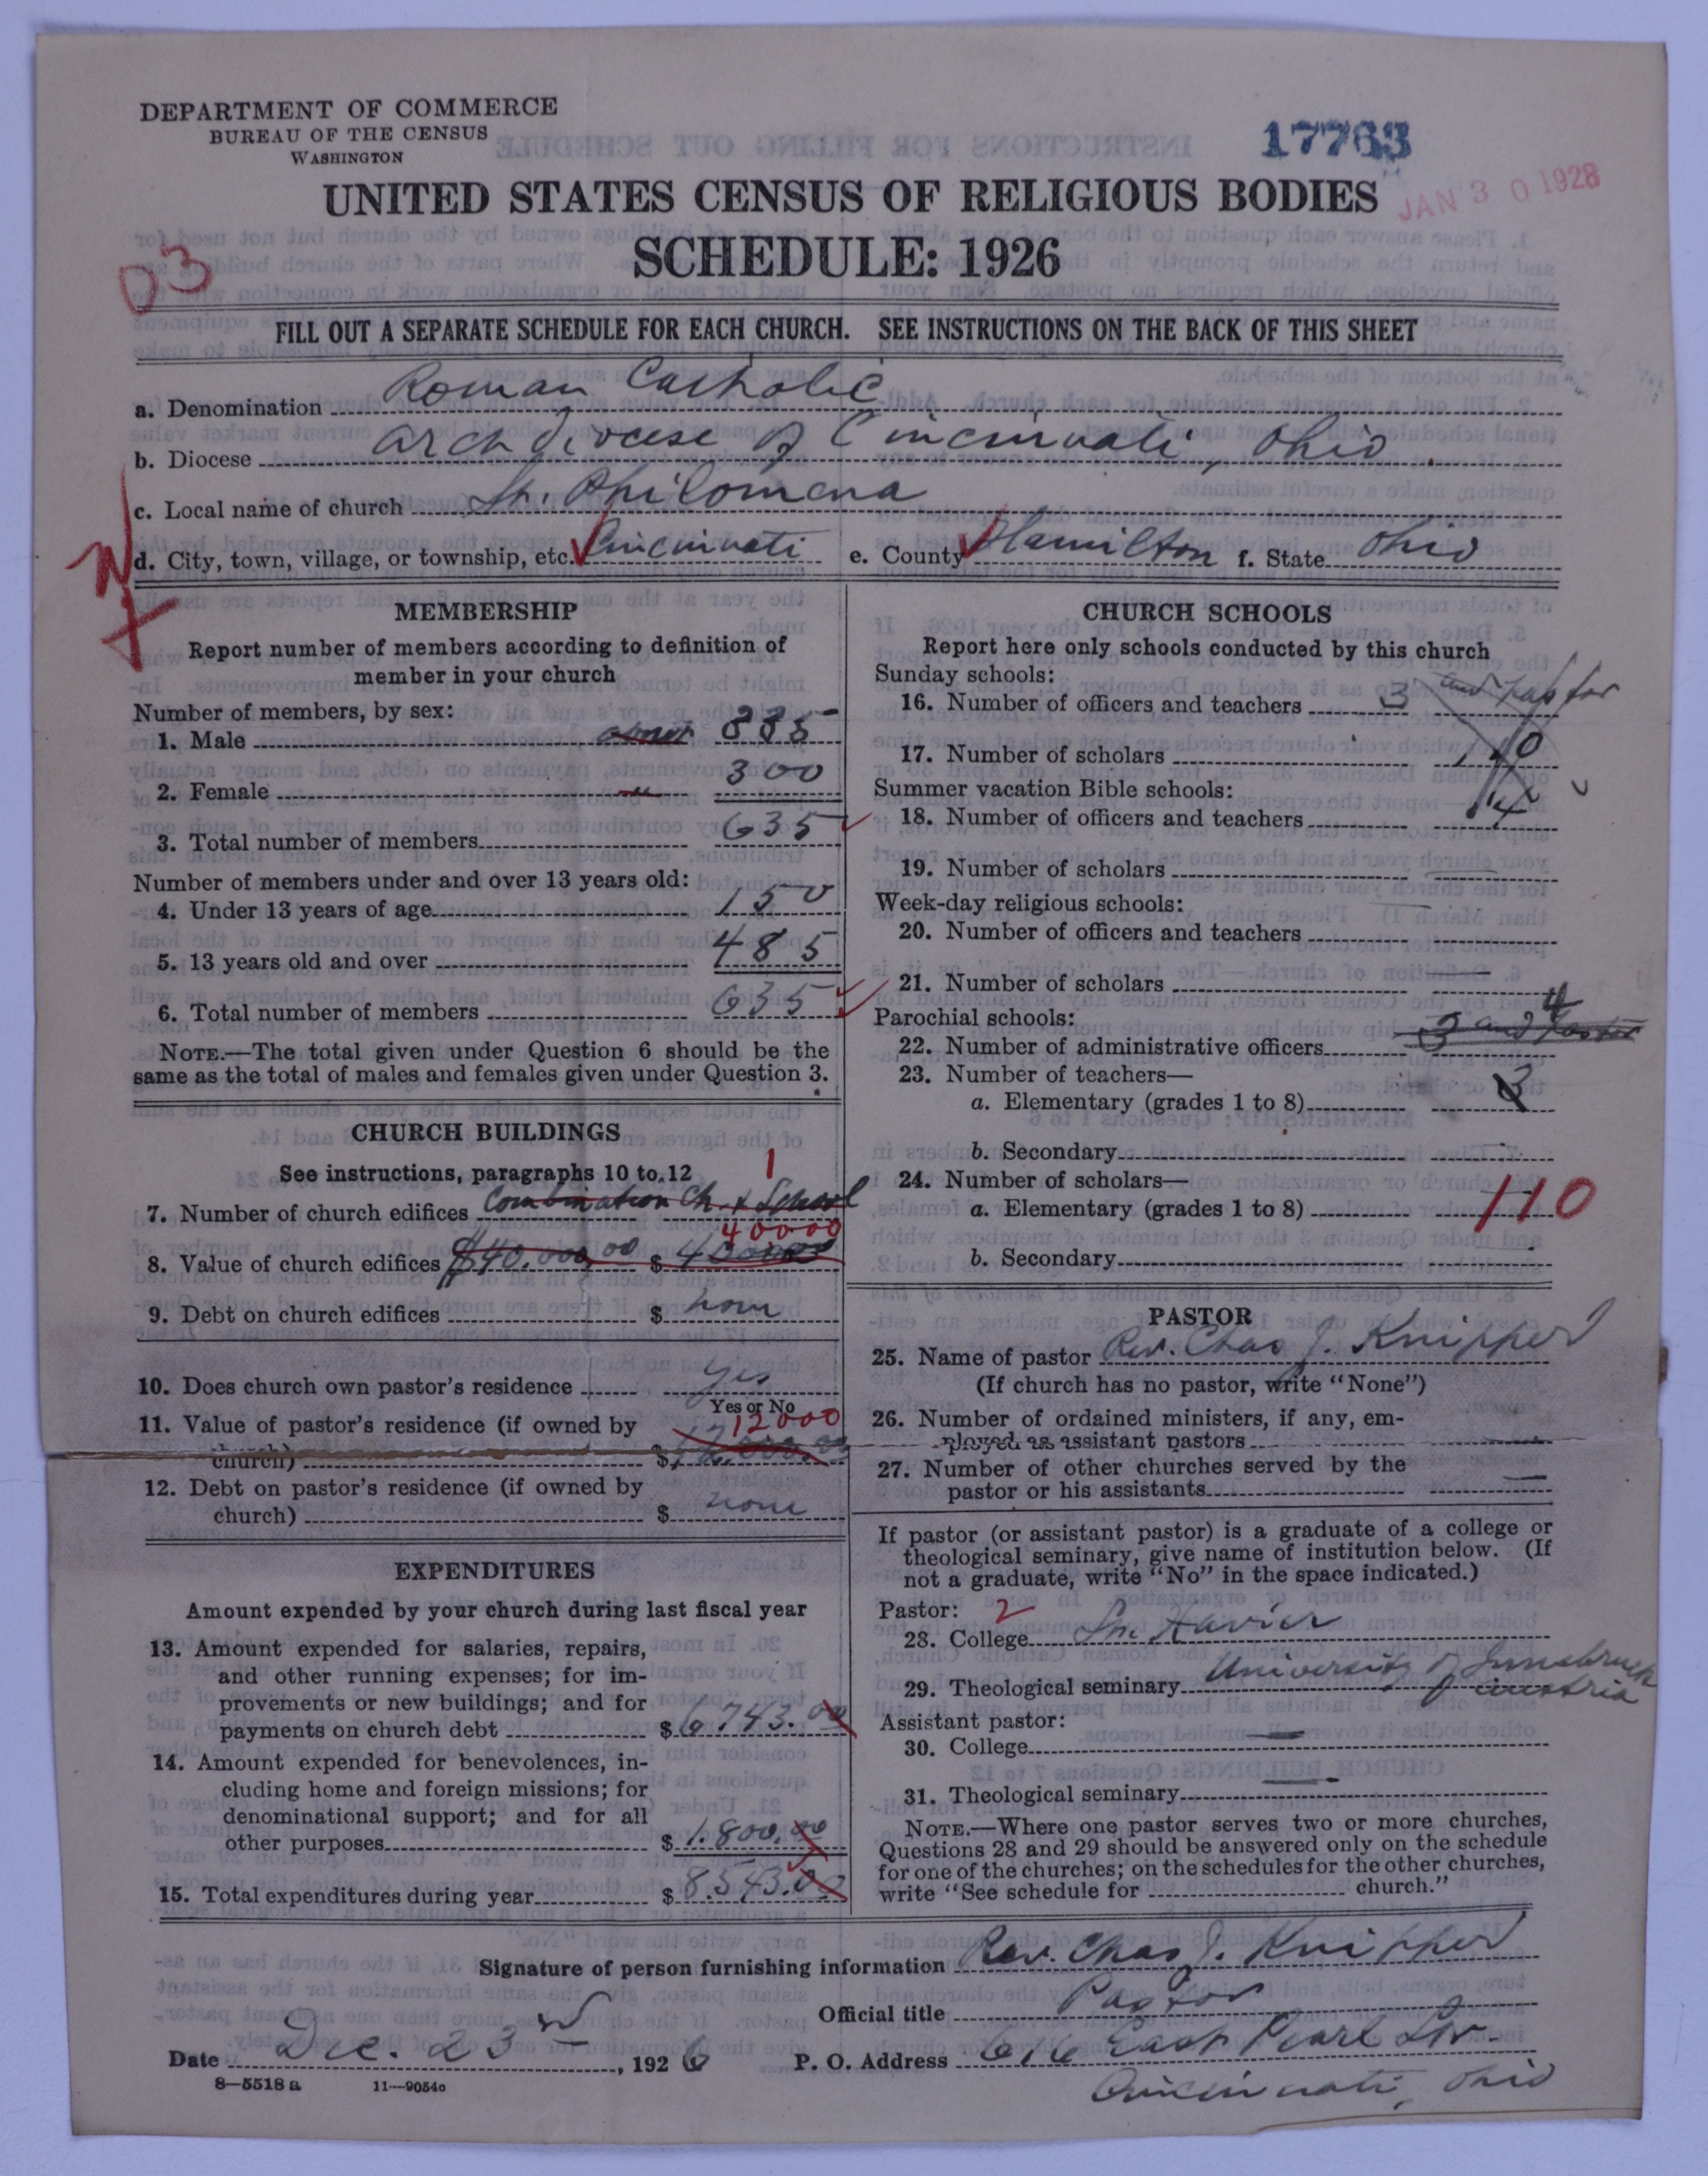 DEPARTMENT OF COMMERCE
BUREAU OF THE CENSUS
WASHINGTON
17763
JAN 30 1928
UNITED STATES CENSUS OF RELIGIOUS BODIES
SCHEDULE: 1926
03
FILL OUT A SEPARATE SCHEDULE FOR EACH CHURCH. SEE INSTRUCTIONS ON THE BACK OF THIS SHEET
a. Denomination Roman Catholic
b. Diocese Archdiocese of Cincinnati, Ohio
c. Local name of church St. Philomena
d. City, town, village, or township, etc. Cincinnati e. County Hamilton f. State Ohio
MEMBERSHIP
Report number of members according to definition of
member in your church
Number of members, by sex:
1. Male about 335
2. Female " 300
3. Total number of members 635
Number of members under and over 13 years old:
4. Under 13 years of age 150
5. 13 years old and over 485
6. Total number of members 635
NOTE.—The total given under Question 6 should be the
same as the total of males and females given under Question 3.
CHURCH BUILDINGS
See instructions, paragraphs 10 to 12
1
7. Number of church edifices Combination Ch. & School
40000
8. Value of church edifices $40.000.00 $ 40000
9. Debt on church edifices $ none
10. Does church own pastor's residence yes
Yes or No
11. Value of pastor's residence (if owned by 12000
church) $ 12.000.00
12. Debt on pastor's residence (if owned by
church) $ none
EXPENDITURES
Amount expended by your church during last fiscal year
13. Amount expended for salaries, repairs,
and other running expenses; for im-
provements or new buildings; and for
payments on church debt $ 6743.00
14. Amount expended for benevolences, in-
cluding home and foreign missions; for
denominational support; and for all
other purposes $ 1.800.00
15. Total expenditures during year $ 8.543.00
CHURCH SCHOOLS
Report here only schools conducted by this church
Sunday schools:
16. Number of officers and teachers 3 and pastor
17. Number of scholars 110
Summer vacation Bible schools:
18. Number of officers and teachers 4
19. Number of scholars
Week-day religious schools:
20. Number of officers and teachers
21. Number of scholars
Parochial schools: 4
22. Number of administrative officers 3 and Pastor
23. Number of teachers—
a. Elementary (grades 1 to 8) 3
b. Secondary
24. Number of scholars—
a. Elementary (grades 1 to 8) 110
b. Secondary
PASTOR
25. Name of pastor Rev. Chas J. Knipper
(If church has no pastor, write "None")
26. Number of ordained ministers, if any, em-
ployed as assistant pastors
27. Number of other churches served by the
pastor or his assistants
If pastor (or assistant pastor) is a graduate of a college or
theological seminary, give name of institution below. (If
not a graduate, write "No" in the space indicated.)
Pastor: 2
28. College St. Xavier
29. Theological seminary University of Innsbruck
Austria
Assistant pastor:
30. College
31. Theological seminary
NOTE.—Where one pastor serves two or more churches,
Questions 28 and 29 should be answered only on the schedule
for one of the churches; on the schedules for the other churches,
write "See schedule for church."
Signature of person furnishing information Rev. Chas J. Knipper
Official title Pastor
Date Dec. 23rd, 1926 P. O. Address 616 East Pearl Str.
8—5518 a 11—9054c Cincinnati, Ohio